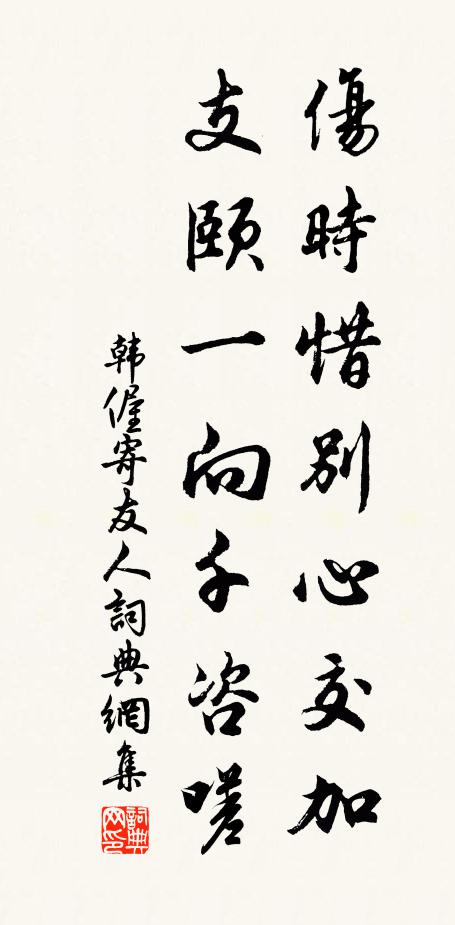 傷時惜別心交加
支頤一向千咨嗟
韩偓寄友人詞典網集
詞典网印